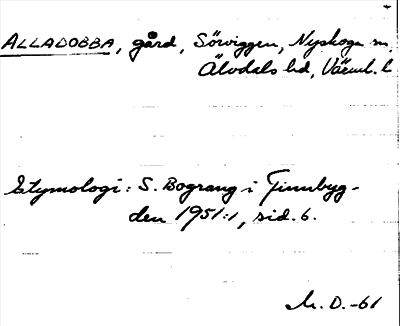 ALLADOBBA, gård, Sörviggen, Nyskoga sn,
Älvdals hd, Värml. l.
Etymologi: S. Bograng i Finnbyg-
den 1951:1, sid. 6.
M. D. -61